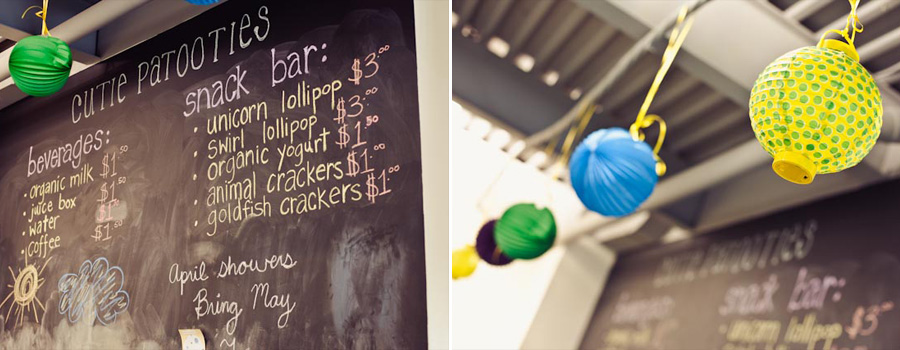 CUTIE PATOOTIES
beverages:
• organic milk $1.50
• juice box $1.50
• water $1
• coffee $1.50
snack bar:
• unicorn lollipop $3.00
• swirl lollipop $3.00
• organic yogurt $1.50
• animal crackers $1.00
• goldfish crackers $1.00
April showers
Bring May
CUTIE PATOOTIES
beverages:
snack bar:
unicorn lollipop $3